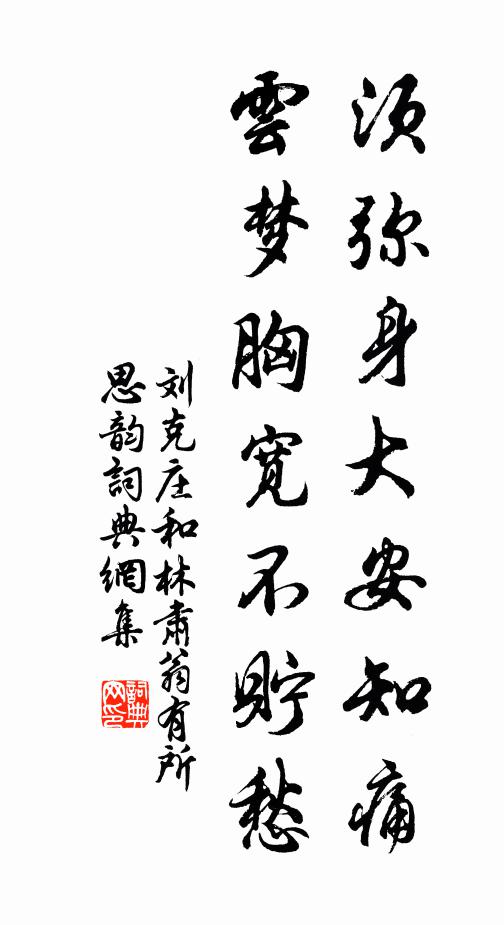 须弥身大安知痛
雲梦胸宽不贮愁
刘克庄和林肃翁有所
思韵詞典網集
詞典
网印